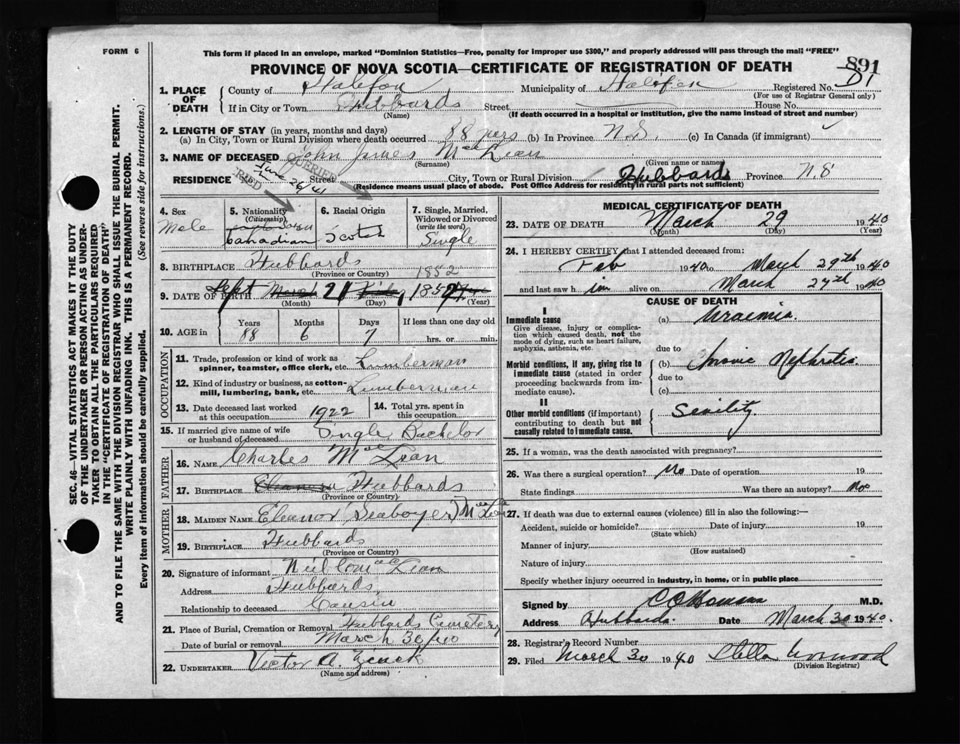 FORM 6
This form if placed in an envelope, marked "Dominion Statistics—Free, penalty for improper use $300," and properly addressed will pass through the mail "FREE"
PROVINCE OF NOVA SCOTIA—CERTIFICATE OF REGISTRATION OF DEATH
891
1. PLACE OF DEATH
County of Halifax Municipality of Halifax Registered No.
(For use of Registrar General only)
If in City or Town Hubbards Street House No.
(Name) (If death occurred in a hospital or institution, give the name instead of street and number)
2. LENGTH OF STAY (in years, months and days)
(a) In City, Town or Rural Division where death occurred 88 years (b) In Province N.S. (c) In Canada (if immigrant)
3. NAME OF DECEASED John James MacLean
(Surname) (Given name or name)
RESIDENCE Street City, Town or Rural Division Hubbards Province N.S
(Residence means usual place of abode. Post Office Address for residents in rural parts not sufficient)
VERIFIED
June 26/41
4. Sex
Male
5. Nationality
(Citizenship)
Canadian
6. Racial Origin
Scotch
7. Single, Married, Widowed or Divorced
(write the word)
Single
8. BIRTHPLACE Hubbards
(Province or Country)
1852
9. DATE OF BIRTH Sept March 21
(Month) (Day) (Year)
10. AGE in
Years Months Days If less than one day old
88 6 7 hrs. or min.
OCCUPATION
11. Trade, profession or kind of work as spinner, teamster, office clerk, etc. Lumberman
12. Kind of industry or business, as cotton-mill, lumbering, bank, etc. Lumberman
13. Date deceased last worked at this occupation 1922
14. Total yrs. spent in this occupation
15. If married give name of wife or husband of deceased Single Bachelor
FATHER
16. NAME Charles MacLean
17. BIRTHPLACE Hubbards
(Province or Country)
MOTHER
18. MAIDEN NAME Eleanor Seaboyer MacLean
19. BIRTHPLACE Hubbards
(Province or Country)
20. Signature of informant MacLean
Address Hubbards
Relationship to deceased Cousin
21. Place of Burial, Cremation or Removal Hubbards Cemetery
Date of burial or removal March 30/40
22. UNDERTAKER Victor A.
(Name and address)
MEDICAL CERTIFICATE OF DEATH
23. DATE OF DEATH March 29 1940
(Month) (Day) (Year)
24. I HEREBY CERTIFY that I attended deceased from:
Feb 1940 to March 29th 1940
and last saw him alive on March 27th 1940
CAUSE OF DEATH
I
Immediate cause
Give disease, injury or complication which caused death, not the mode of dying, such as heart failure, asphyxia, asthenia, etc.
(a) Uraemia
due to
Morbid conditions, if any, giving rise to immediate cause (stated in order proceeding backwards from immediate cause).
(b) Chronic Nephritis
due to
(c)
II
Other morbid conditions (if important) contributing to death but not causally related to immediate cause.
Senility
25. If a woman, was the death associated with pregnancy?
26. Was there a surgical operation? No Date of operation 19
State findings Was there an autopsy? No
27. If death was due to external causes (violence) fill in also the following:—
Accident, suicide or homicide? Date of injury 19
(State which)
Manner of injury
(How sustained)
Nature of injury
Specify whether injury occurred in industry, in home, or in public place
Signed by M.D.
Address Hubbards Date March 30 1940.
28. Registrar's Record Number
29. Filed March 30 1940 Stella Norwood
(Division Registrar)
SEC. 46—VITAL STATISTICS ACT MAKES IT THE DUTY OF THE UNDERTAKER OR PERSON ACTING AS UNDERTAKER TO OBTAIN ALL THE PARTICULARS REQUIRED IN THE "CERTIFICATE OF REGISTRATION OF DEATH" AND TO FILE THE SAME WITH THE DIVISION REGISTRAR WHO SHALL ISSUE THE BURIAL PERMIT.
WRITE PLAINLY WITH UNFADING INK. THIS IS A PERMANENT RECORD.
Every item of information should be carefully supplied. (See reverse side for instructions.)